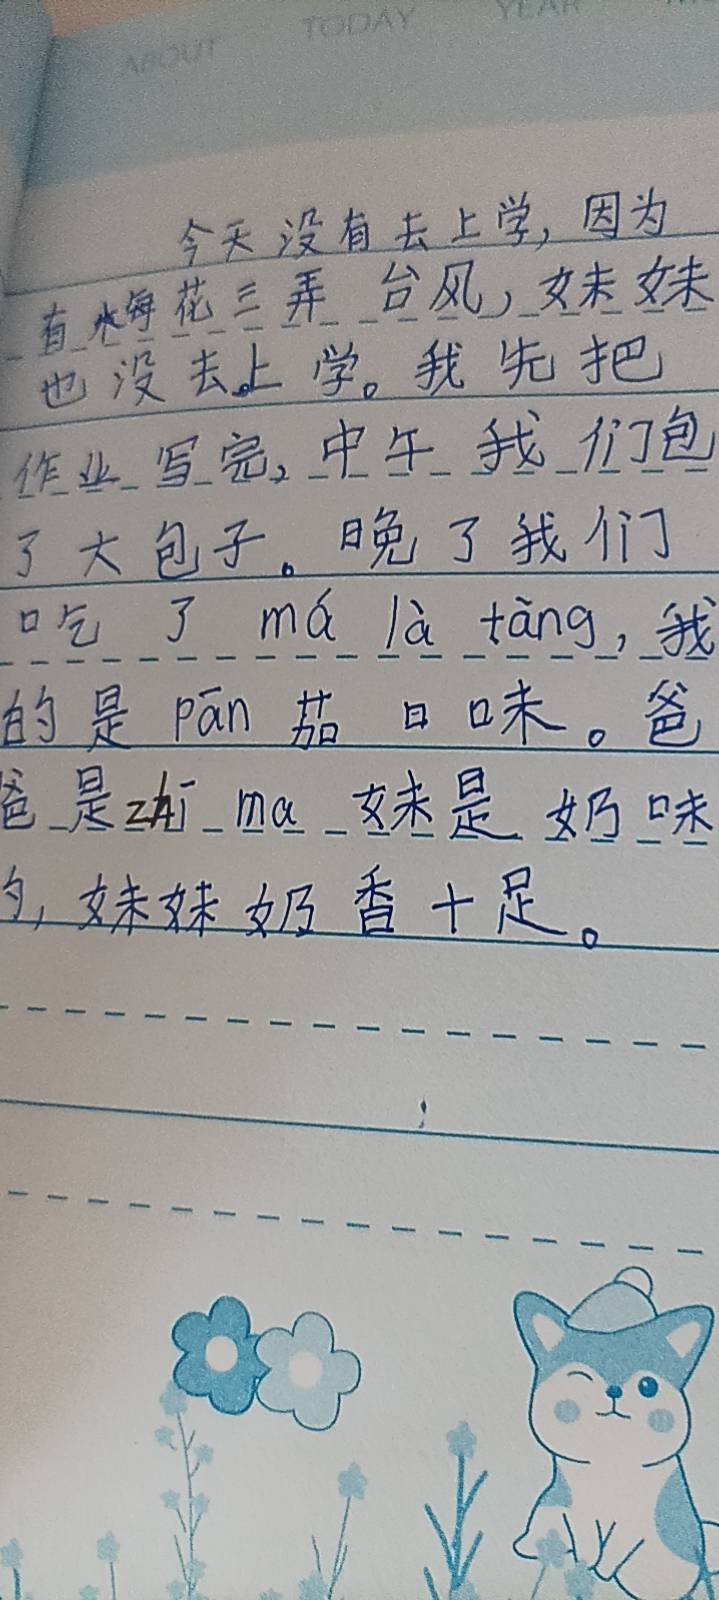 ABOUT TODAY YEAR
今天没有去上学，因为
有梅花三弄 台风，妹妹
也没去上学。我先把
作业写完，中午我们包
了大包子。晚了我们
吃了 má là tàng，我
的是 pān 茄日味。爸
爸是 zhī ma 妹是奶味
的，妹妹奶香十足。